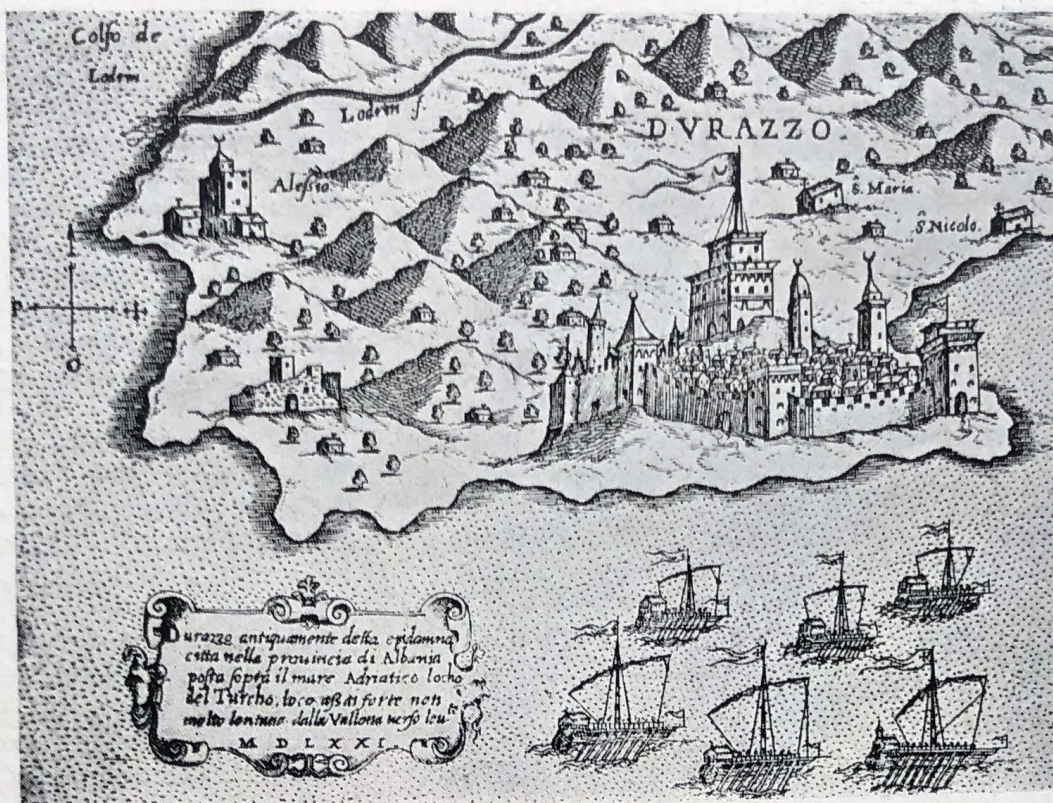 Colfo de
Lodrin
Lodrin f
DVRAZZO
Alessio
S. Maria
S. Nicolo.
Durazzo antiquamente detta epidamna
citta nella prouincia di Albania
posta sopra il mare Adriatico locho
del Turcho, loco assai forte non
molto lontano dalla Vallona uerso leuᵗᵉ
M D L X X I